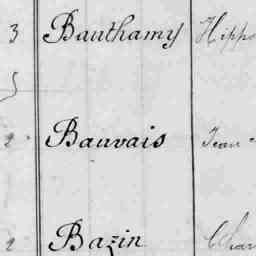 3 Bauthamy Hippo
2 Bauvais Jean
2 Bazin Char